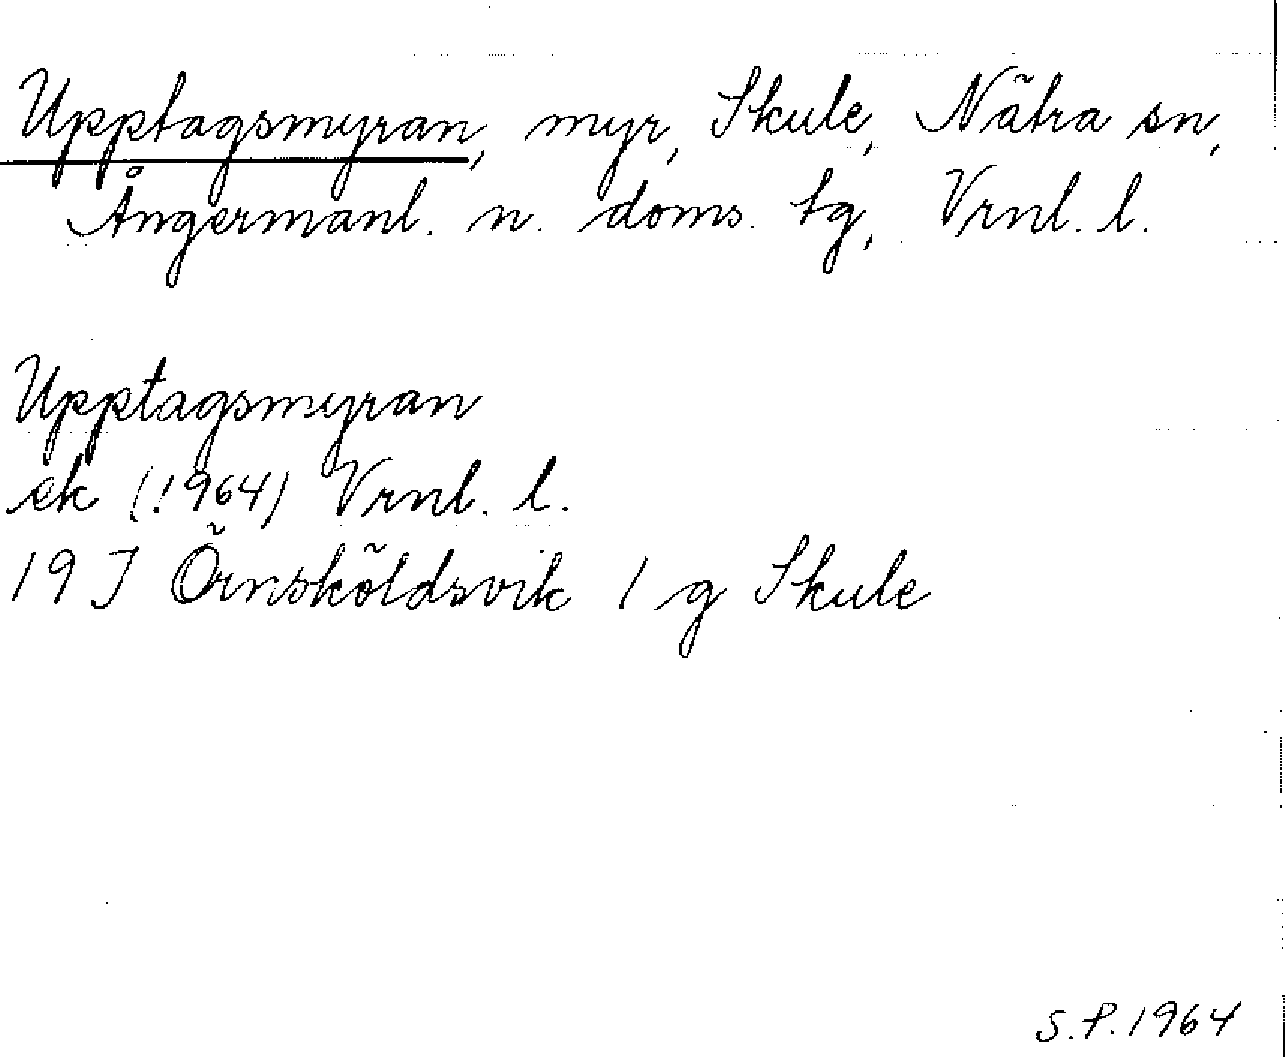 Upptagsmyran, myr, Skule, Nätra sn,
Ångermanl. n. doms. tg, Vrnl. l.
Upptagsmyran
ek (1964) Vrnl. l.
19 J Örnsköldsvik 1 g Skule
S.P. 1964